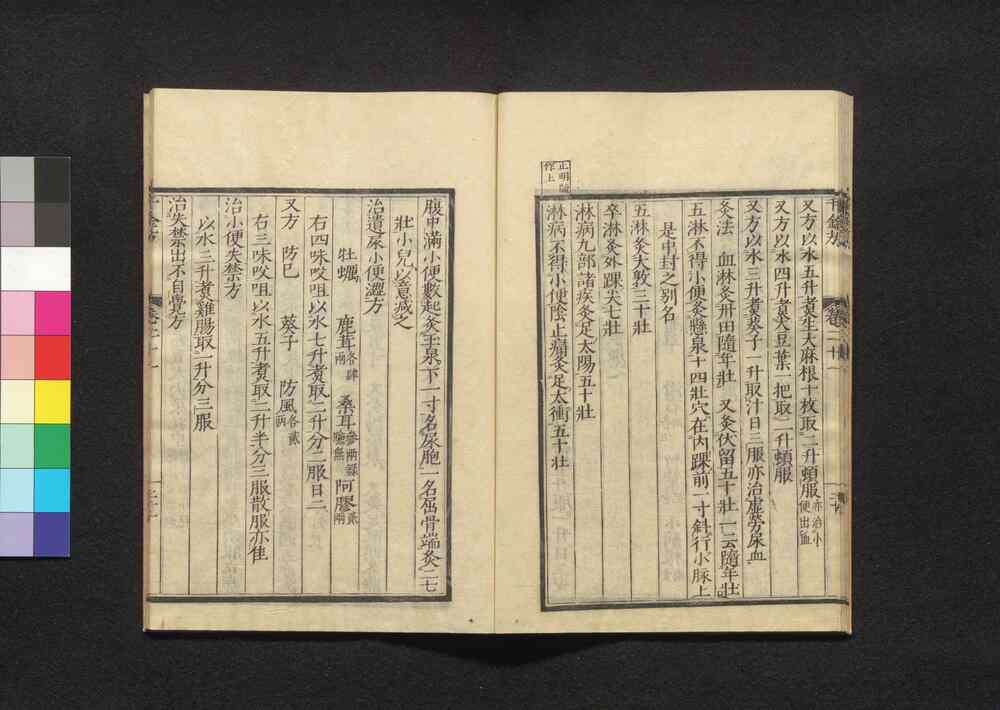 又方以水五升煮生大麻根十枚取二升頓服亦治小便出血
又方以水四升煮大豆葉一把取二升頓服
又方以水三升煮葵子一升取汁日三服亦治虛勞尿血
灸法 血淋灸丹田隨年壯 又灸伏留五十壯一云隨年壯
五淋不得小便灸懸泉十四壯穴在內踝前一寸斜行小脉上
是中封之別名
五淋灸大敦三十壯
卒淋灸外踝尖七壯
淋病九部諸疾灸足太陽五十壯
淋病不得小便陰上痛灸足太衝五十壯
正明
作上
腹中滿小便數起灸玉泉下一寸名尿胞一名屈骨端灸二七
壯小兒以意減之
治遺尿小便澀方
牡蠣 鹿茸各肆兩 桑耳參兩 阿膠貳兩
右四味㕮咀以水七升煮取二升分二服日二
又方 防已 葵子 防風各貳兩
右三味㕮咀以水五升煮取二升半分三服散服亦佳
治小便失禁方
以水三升煮雞腸取一升分三服
治失禁出不自覺方